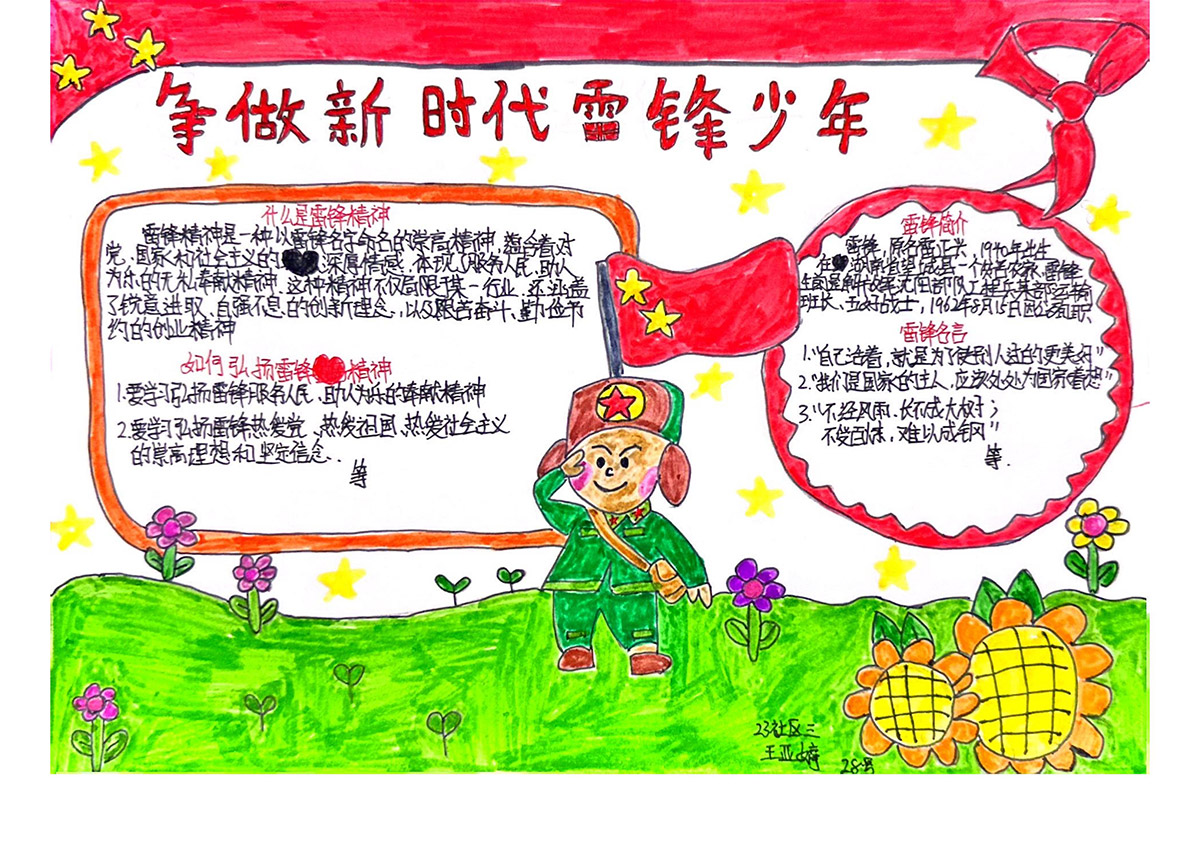 争做新时代雷锋少年
什么是雷锋精神
雷锋精神是一种以雷锋名字命名的崇高精神,蕴含着对
党、国家和社会主义的深厚情感,体现了服务人民、助人
为乐的无私奉献精神,这种精神不仅局限于某一行业,还涵盖
了锐意进取、自强不息的创新理念,以及艰苦奋斗、勤俭节
约的创业精神
如何弘扬雷锋精神
1.要学习弘扬雷锋服务人民、助人为乐的奉献精神
2.要学习弘扬雷锋热爱党、热爱祖国、热爱社会主义
的崇高理想和坚定信念..
等
雷锋简介
雷锋,原名雷正兴,1940年出生
在湖南省望城县一个贫苦农家,雷锋
生前是解放军沈阳部队工程兵某部运输
班长、五好战士,1962年8月15日因公殉职
雷锋名言
1."自己活着,就是为了使别人过的更美好"
2."我们是国家的主人,应该处处为国家着想"
3."不经风雨,长不成大树;
不受百炼,难以成钢"
等.
23社区三
王亚婷
28号